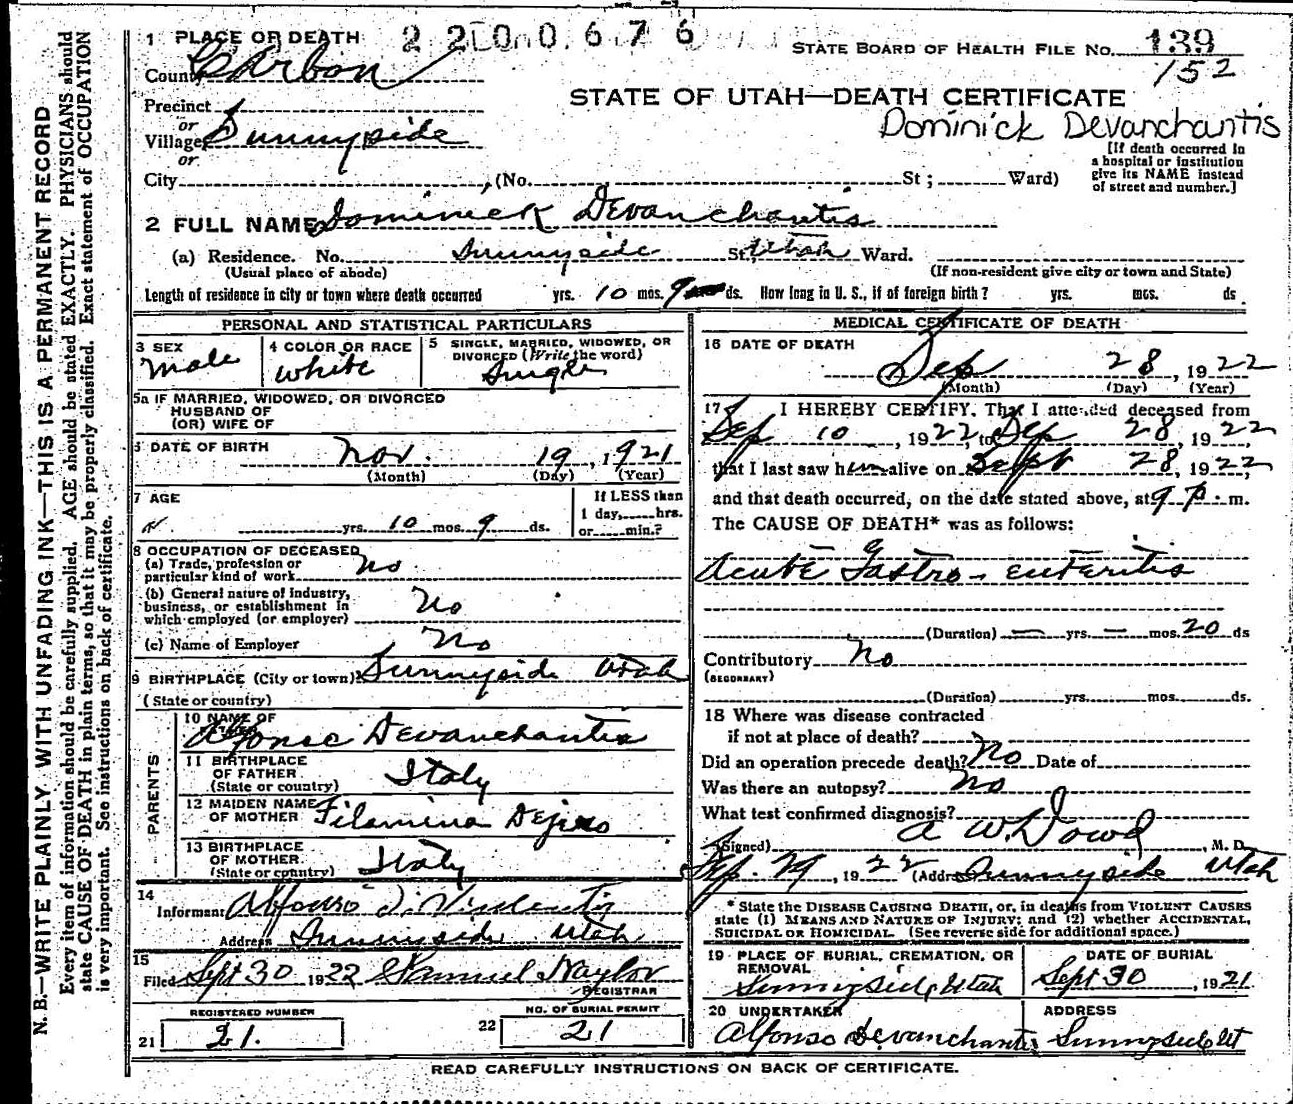 1 PLACE OF DEATH 2200676
STATE BOARD OF HEALTH FILE NO. 139
152
County Carbon
STATE OF UTAH—DEATH CERTIFICATE
Precinct
or
Village Sunnyside
or
Dominick Devanchantis
[If death occurred in
a hospital or institution
give its NAME instead
of street and number.]
City , (No. St; Ward)
2 FULL NAME Dominick Devanchantis
(a) Residence. No. Sunnyside St, Utah Ward.
(Usual place of abode) (If non-resident give city or town and State)
Length of residence in city or town where death occurred yrs. 10 mos. 9 ds. How long in U. S., if of foreign birth? yrs. mos. ds
PERSONAL AND STATISTICAL PARTICULARS
3 SEX
Male
4 COLOR OR RACE
White
5 SINGLE, MARRIED, WIDOWED, OR
DIVORCED (Write the word)
Single
5a IF MARRIED, WIDOWED, OR DIVORCED
HUSBAND OF
(OR) WIFE OF
6 DATE OF BIRTH Nov. 19, 1921
(Month) (Day) (Year)
7 AGE
yrs. 10 mos. 9 ds.
If LESS than
1 day, hrs.
or min.?
8 OCCUPATION OF DECEASED
(a) Trade, profession or
particular kind of work No
(b) General nature of industry,
business, or establishment in
which employed (or employer) No
(c) Name of Employer No
9 BIRTHPLACE (City or town) Sunnyside Utah
(State or country)
PARENTS
10 NAME OF
Alfonse Devanchantis
11 BIRTHPLACE
OF FATHER
(State or country) Italy
12 MAIDEN NAME
OF MOTHER Filamina
13 BIRTHPLACE
OF MOTHER
(State or country) Italy
14
Informant Alfonso
Address Sunnyside Utah
15
Filed Sept 30 1922 Samuel Naylor
REGISTRAR
REGISTERED NUMBER
21 21.
NO. OF BURIAL PERMIT
22 21
MEDICAL CERTIFICATE OF DEATH
16 DATE OF DEATH
Sep 28, 1922
(Month) (Day) (Year)
17 I HEREBY CERTIFY, That I attended deceased from
Sep 10, 1922 to Sep 28, 1922,
that I last saw him alive on Sept 28, 1922,
and that death occurred, on the date stated above, at 9 P. m.
The CAUSE OF DEATH* was as follows:
Acute Gastro-enteritis
(Duration) — yrs. — mos. 20 ds
Contributory No
(SECONDARY)
(Duration) yrs. mos. ds.
18 Where was disease contracted
if not at place of death?
Did an operation precede death? No Date of
Was there an autopsy? No
What test confirmed diagnosis?
(Signed) A W. Dowd, M. D.
Sep. 29, 1922 (Address Sunnyside Utah
* State the DISEASE CAUSING DEATH, or, in deaths from VIOLENT CAUSES
state (1) MEANS AND NATURE OF INJURY; and (2) whether ACCIDENTAL,
SUICIDAL OR HOMICIDAL. (See reverse side for additional space.)
19 PLACE OF BURIAL, CREMATION, OR
REMOVAL
Sunnyside, Utah
DATE OF BURIAL
Sept 30, 1921
20 UNDERTAKER
Alfonso Devanchantis
ADDRESS
Sunnyside Ut
READ CAREFULLY INSTRUCTIONS ON BACK OF CERTIFICATE.
N. B.—WRITE PLAINLY WITH UNFADING INK—THIS IS A PERMANENT RECORD
Every item of information should be carefully supplied. AGE should be stated EXACTLY. PHYSICIANS should
state CAUSE OF DEATH in plain terms, so that it may be properly classified. Exact statement of OCCUPATION
is very important. See instructions on back of certificate.